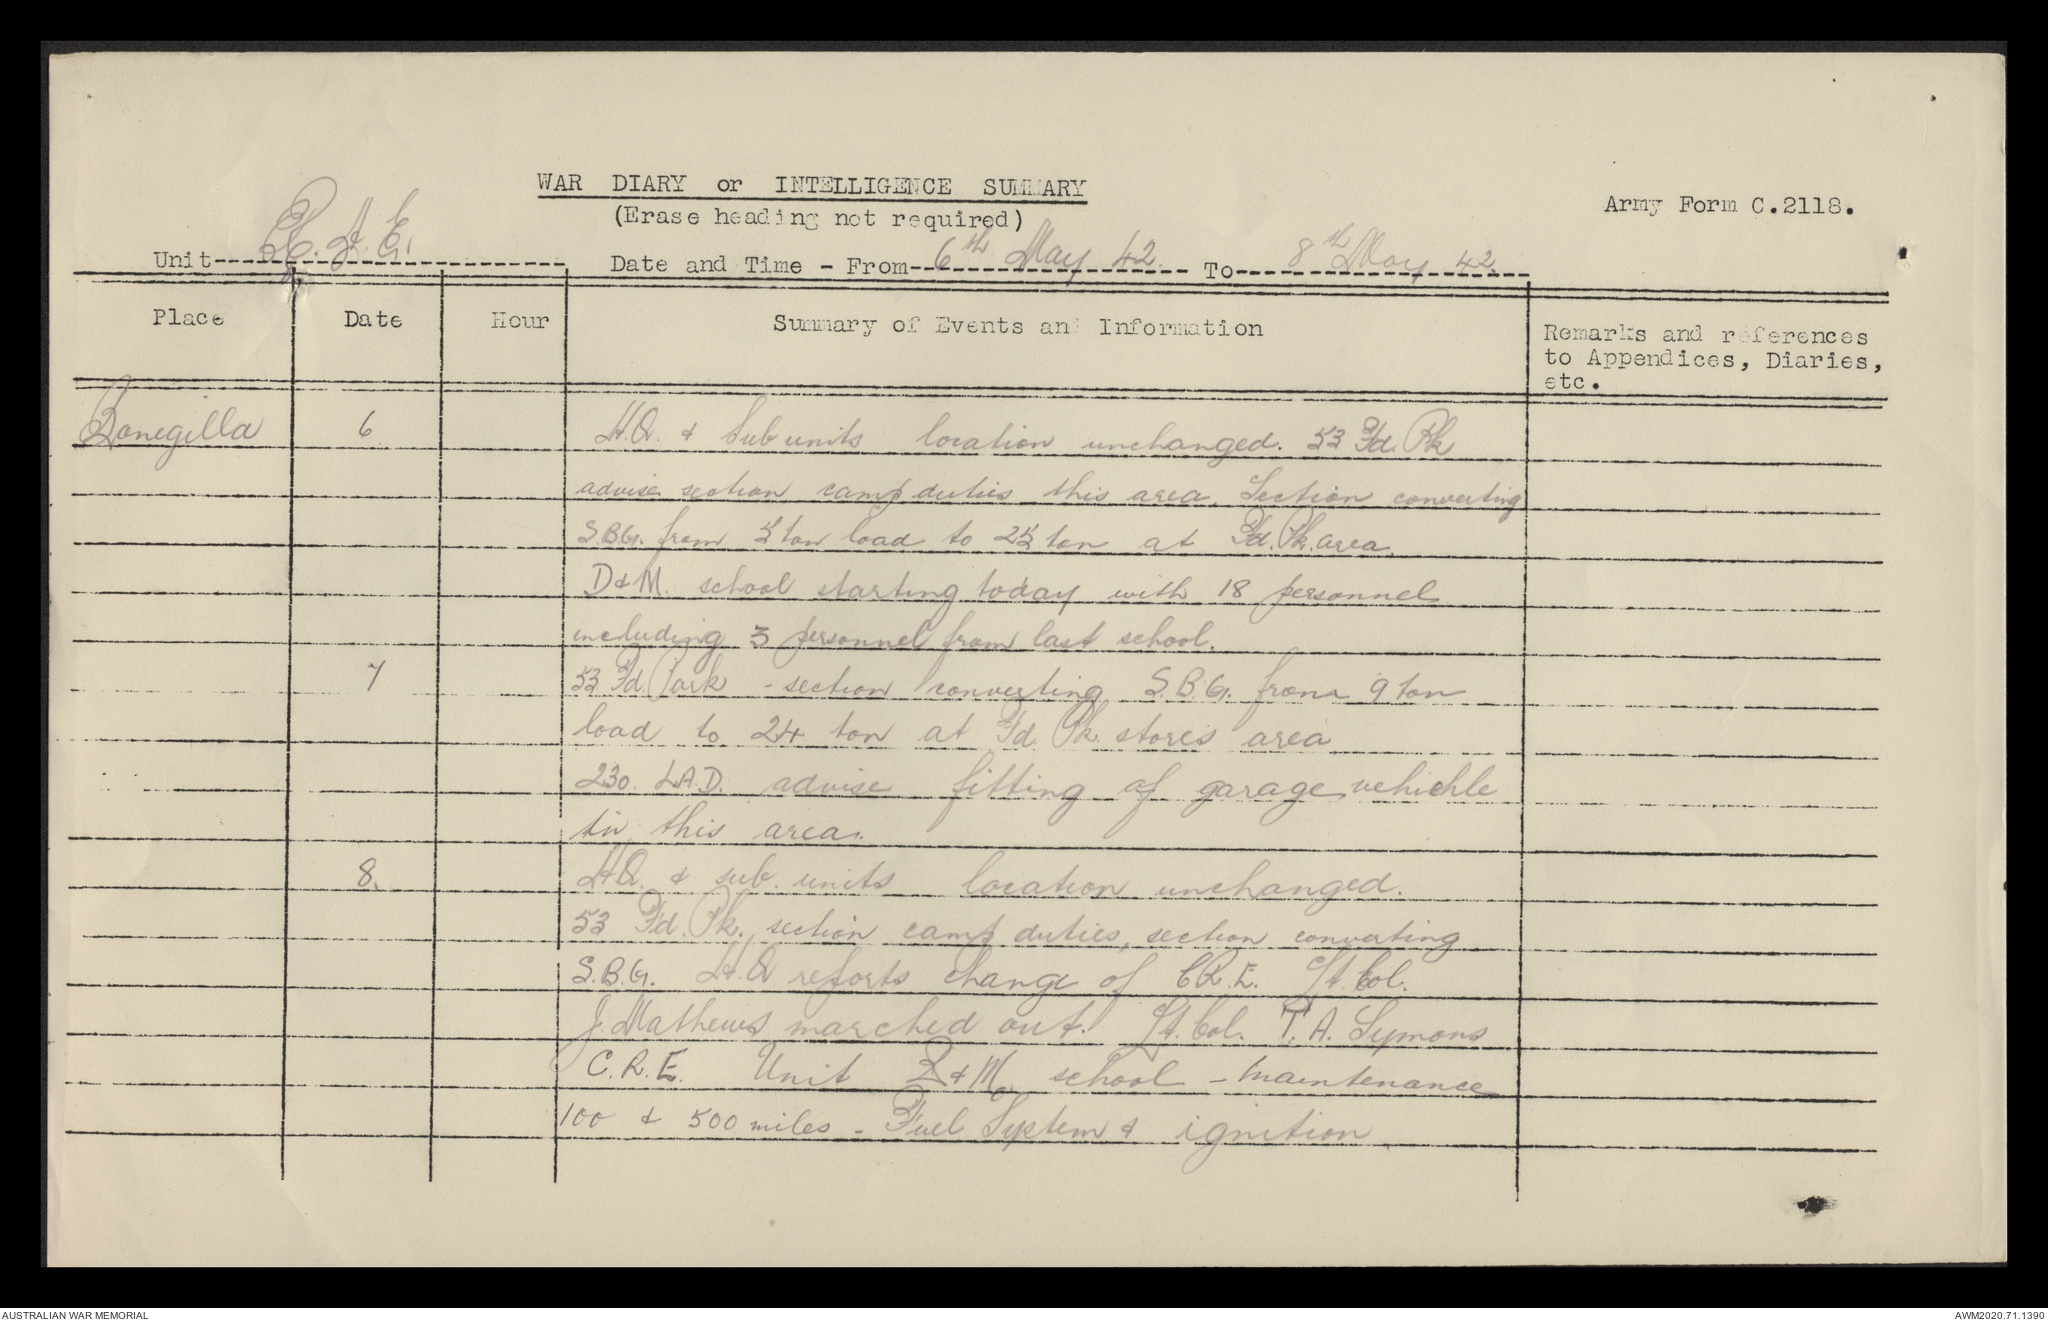 WAR DIARY or INTELLIGENCE SUMMARY
(Erase heading not required)
Army Form C.2118.
Unit R.A.E.
Date and Time - From 6th May 42. To 8th May 42.
Place Date Hour Summary of Events and Information Remarks and references
to Appendices, Diaries,
etc.
Bonegilla 6 H.Q. & Sub units location unchanged. 53 Fd. Pk
advise section camp duties this area. Section converting
S.B.G. from ton load to ton at Fd. Pk. area.
D & M. school starting today with 18 personnel
including 3 personnel from last school.
7 53 Fd Park - section converting S.B.G. from 9 ton
load to 24 ton at Fd. Pk. stores area
230. L.A.D. advise fitting of garage vehichle
in this area.
8. H.Q. & sub. units location unchanged.
53 Fd. Pk., section camp duties, section converting
S.B.G. H.Q reports change of C.R.E. Lt. Col.
J. Mathews marched out. Lt. Col. T. A. Symons
C.R.E. Unit D & M. school - maintenance
100 & 500 miles - Fuel System & ignition
AUSTRALIAN WAR MEMORIAL
AWM2020.71.1390